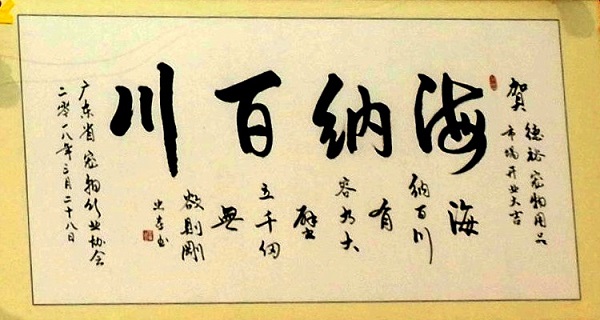 賀
德裕宠物用品
市場开业大吉
海纳百川
海
纳百川
有
容乃大
壁
立千仞
無
欲則剛
广东省宠物行业协会
二零一八年三月二十八日